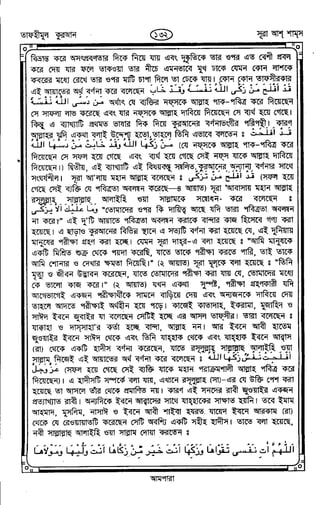 তাফহীমুল কুরআন
১৩২
সূরা আশ্ শামস
বিভ্রান্ত করে অসৎপ্রবণতার দিকে নিয়ে যায় এবং দুষ্কৃতিকে তার ওপর এত বেশী প্রবল
করে দেয় যার ফলে তাকওয়া তার নীচে এমনভাবে মুখ ঢাকে যেমন কোন লাশকে
কবরের মধ্যে রেখে তার ওপর মাটি চাপা দিলে তা ঢেকে যায়। কোন কোন তাফসীরকার
এই আয়াতের অর্থ বর্ণনা করে বলেছেন قد افلح من زكى الله نفسه وقد خاب
من دسى الله نفسه অর্থাৎ যে ব্যক্তির নফসকে আল্লাহ পাক-পবিত্র করে দিয়েছেন
সে সাফল্য লাভ করেছে এবং যার নফসকে আল্লাহ দাবিয়ে দিয়েছেন সে ব্যর্থ হয়ে গেছে।
কিন্তু এ ব্যাখ্যাটি প্রথমত ভাষার দিক দিয়ে কুরআনের বর্ণনাভংগীর পরিপন্থী। কারণ
আল্লাহর যদি একথা বলাই উদ্দেশ্য হতো, তাহলে তিনি এভাবে বলতেন : قد افلحت
نفس زكها الله وقد خابت نفس دسها الله (যে নফসকে আল্লাহ পাক-পবিত্র করে
দিয়েছেন সে সফল হয়ে গেছে এবং ব্যর্থ হয়ে গেছে সেই নফস যাকে আল্লাহ দাবিয়ে
দিয়েছেন।) দ্বিতীয়, এই ব্যাখ্যাটি এই বিষয়বস্তু সম্বলিত কুরআনের অন্যান্য বর্ণনার সাথে
সংঘর্ষশীল। সূরা আ'লায় মহান আল্লাহ বলেছেন : قد افلح من تزكى (সফল হয়ে
গেছে সেই ব্যক্তি যে পবিত্রতা অবলম্বন করেছে—৪ আয়াত) সূরা 'আবাসায় মহান আল্লাহ
রসূলুল্লাহ সাল্লাল্লাহু আলাইহি ওয়া সাল্লামকে সম্বোধন করে বলেছেন :
وما عليك الا يزكى "তোমাদের ওপর কি দায়িত্ব আছে যদি তারা পবিত্রতা অবলম্বন
না করে?" এই দু'টি আয়াতে পবিত্রতা অবলম্বন করাকে বান্দার কাজ হিসেবে গণ্য করা
হয়েছে। এ ছাড়াও কুরআনের বিভিন্ন স্থানে এ সত্যটি বর্ণনা করা হয়েছে যে, এই দুনিয়ায়
মানুষের পরীক্ষা গ্রহণ করা হচ্ছে। যেমন সূরা দাহ্র-এ বলা হয়েছে : "আমি মানুষকে
একটি মিশ্রিত শুক্র থেকে পয়দা করেছি, যাতে তাকে পরীক্ষা করতে পারি, তাই তাকে
আমি শোনার ও দেখার ক্ষমতা দিয়েছি।" (২ আয়াত) সূরা মূলকে বলা হয়েছে : "তিনি
মৃত্যু ও জীবন উদ্ভাবন করেছেন, যাতে তোমাদের পরীক্ষা করা যায় যে, তোমাদের মধ্যে
কে ভালো কাজ করে।" (২ আয়াত) যখন একথা সুস্পষ্ট, পরীক্ষা গ্রহণকারী যদি
আগেভাগেই একজন পরীক্ষার্থীকে সামনে বাড়িয়ে দেয় এবং অন্যজনকে দাবিয়ে দেয়
তাহলে আদতে পরীক্ষাই অর্থহীন হয়ে পড়ে। কাজেই কাতাদাহ, ইকরামা, মুজাহিদ ও
সাঈদ ইবনে জুবাইর যা বলেছেন সেটিই হচ্ছে এর আসল তাফসীর। তারা বলেছেন :
যাক্কাহা ও দাস্সাহা'র কর্তা হচ্ছে বান্দা, আল্লাহ নন। আর ইবনে আবী হাতেম
জুওয়াইর ইবনে সাঈদ থেকে এবং তিনি যাহহাক থেকে এবং যাহহাক ইবনে আব্বাস
(রা) থেকে একটি হাদীস বর্ণনা করেছেন, যাতে রসূলুল্লাহ সাল্লাল্লাহু আলাইহি ওয়া
সাল্লাম নিজেই এই আয়াতের অর্থ বর্ণনা করে বলেছেন : افلحت نفس زكها الله عز وجل
(সফল হয়ে গেছে সেই ব্যক্তি যাকে মহান পরাক্রমশালী আল্লাহ পবিত্র করে
দিয়েছেন)। এ হাদীসটি সম্পর্কে বলা যায়, এখানে রসূলুল্লাহর (সা)-এর যে উক্তি পেশ করা
হয়েছে তা আসলে তাঁর থেকে প্রমাণিত নয়। কারণ এই সনদের রাবী জুওয়াইর একজন
প্রত্যাখ্যাত রাবী। অন্যদিকে ইবনে আব্বাসের সাথে যাহহাকের সাক্ষাত হয়নি। তবে ইমাম
আহমাদ, মুসলিম, নাসাঈ ও ইবনে আবী শাইবা হযরত যায়েদ ইবনে আরকাম (রা)
থেকে যে রেওয়ায়াতটি করেছেন সেটি অবশ্যি একটি সহীহ হাদীস। তাতে বলা হয়েছে,
নবী সাল্লাল্লাহু আলাইহি ওয়া সাল্লাম দোয়া করতেন :
اللهم ات نفسى تقواها وزكها انت خير من زكاها انت وليها ومولاها
আমপারা